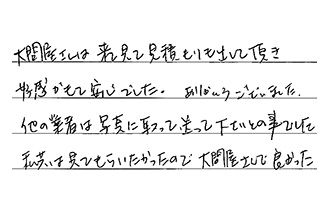 大問屋さんは 来て見て見積もりも出して頂き
好感がもて安心でした。 ありがとうございました。
他の業者は写真に取って送って下さいとの事でした
私共は見てもらいたかったので 大問屋さんで良かった